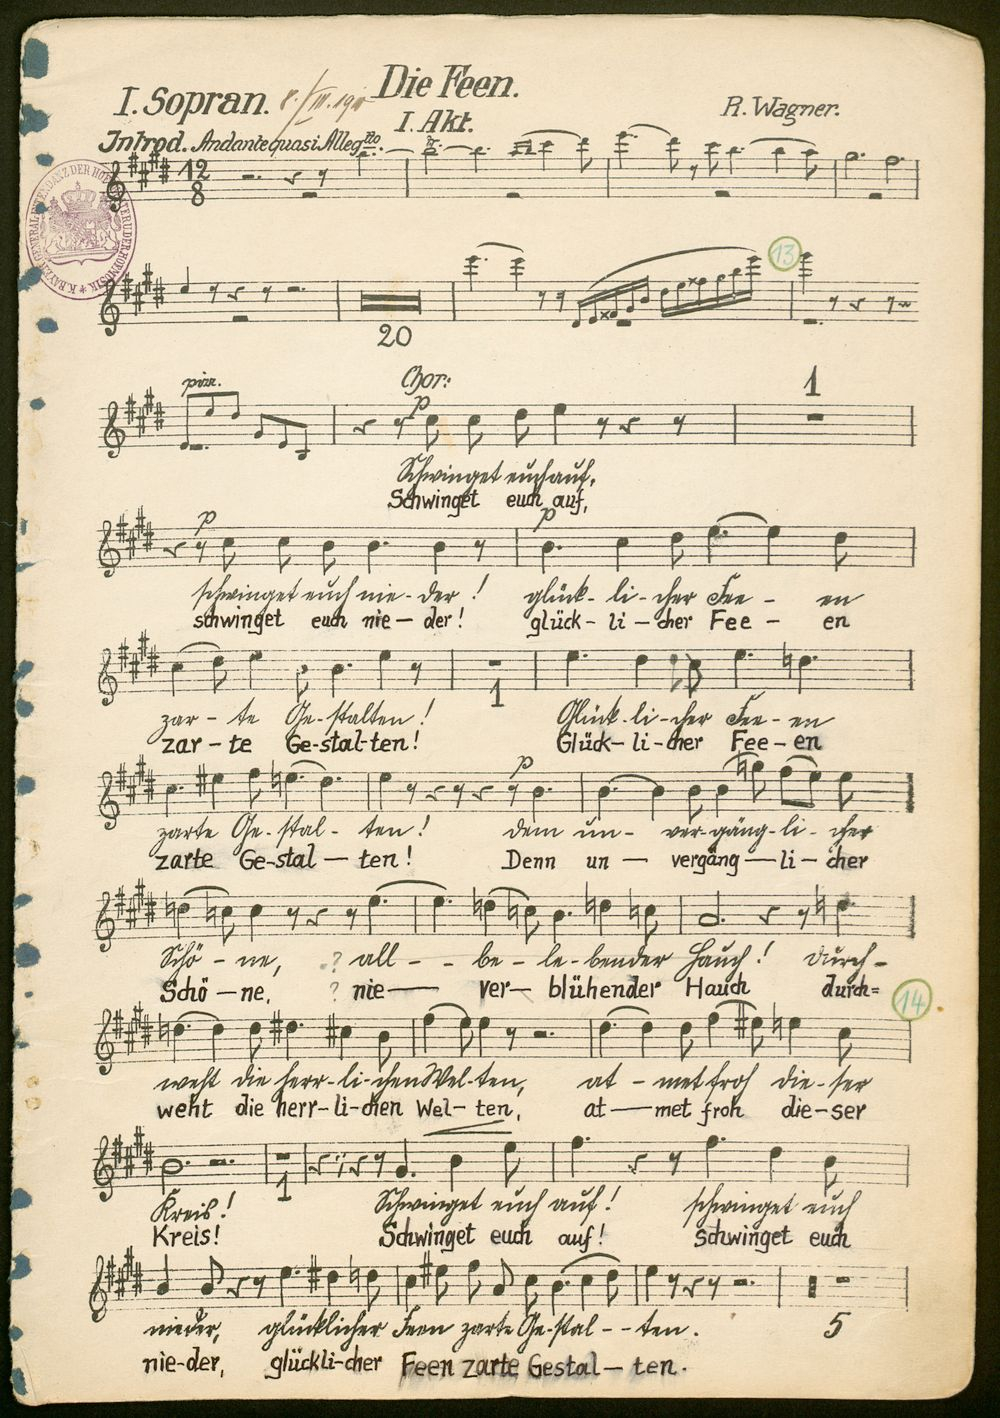 I. Sopran.
Die Feen.
I. Akt.
R. Wagner.
Introd. Andante quasi Allegtto.
12
8
20
13
pizz.
Chor:
p
1
Schwinget euch auf,
Schwinget euch auf,
p
p
schwinget euch nie-der! glück-li-cher Fee-en
schwinget euch nie-der! glück-li-cher Fee-en
1
zar-te Ge-stalten! Glück-li-cher Fee-en
zar-te Ge-stal-ten! Glück-li-cher Fee-en
p
zarte Ge-stal-ten! dem un-ver-gäng-li-cher
zarte Ge-stal-ten! Denn un-vergäng-li-cher
Schö-ne, ? all--be-le-bender Hauch! durch-
Schö-ne, ? nie-ver-blühender Hauch durch=
14
weht die herr-li-chen Wel-ten, at-met froh die-ser
weht die herr-li-chen Wel-ten, at-met froh die-ser
1
Kreis! Schwinget euch auf! schwinget euch
Kreis! Schwinget euch auf! schwinget euch
nieder, glücklicher Feen zarte Ge-stal--ten. 5
nie-der, glückli-cher Feen zarte Gestal-ten.